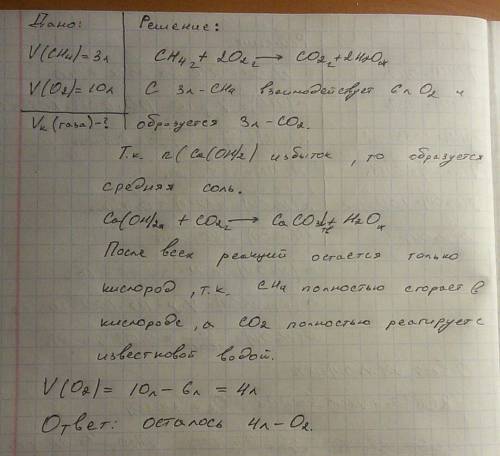 Дано:
Решение:
V(CH4)=3л
CH4г + 2O2г → CO2г + 2H2Oж
V(O2)=10л
С 3л-CH4 взаимодействует 6л O2 и
Vк (газа)-?
образуется 3л-CO2.
Т.к. n(Ca(OH)2) избыток, то образуется
средняя соль.
Ca(OH)2 + CO2г → CaCO3↓ + H2Oж
После всех реакций остается только
кислород, т.к. CH4 полностью сгорает в
кислороде, а CO2 полностью реагирует с
известковой водой.
V(O2)= 10л - 6л = 4л
Ответ: осталось 4л-O2.